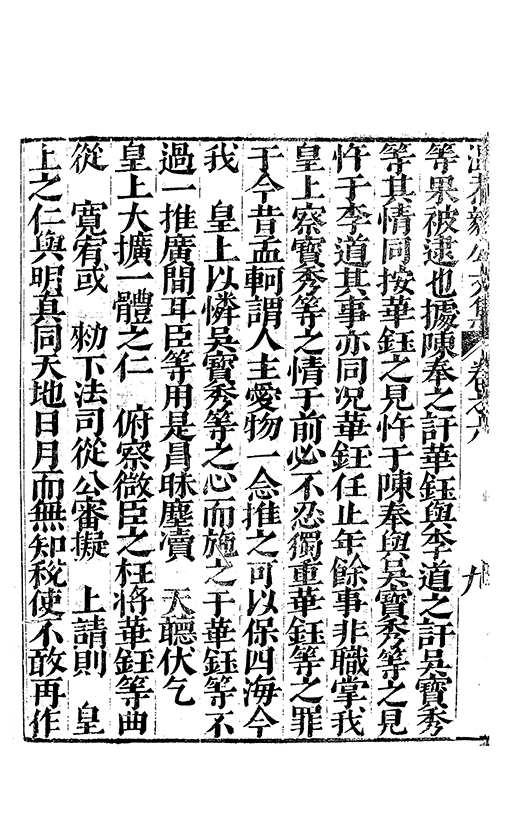 溫恭毅公文集 卷之六 九
等果被逮也據陳奉之訐華鈺與李道之訐吳寶秀
等其情同按華鈺之見忤于陳奉與吳寶秀等之見
忤于李道其事亦同况華鈺任止年餘事非職掌我
皇上察寶秀等之情于前必不忍獨重華鈺等之罪
于今昔孟軻謂人主愛物一念推之可以保四海今
我 皇上以憐吳寶秀等之心而施之于華鈺等不
過一推廣間耳臣等用是冒昧塵瀆 天聽伏乞
皇上大擴一體之仁 俯察微臣之枉將華鈺等曲
從 寬宥或 勑下法司從公審擬 上請則 皇
上之仁與明真同天地日月而無知稅使不敢再作